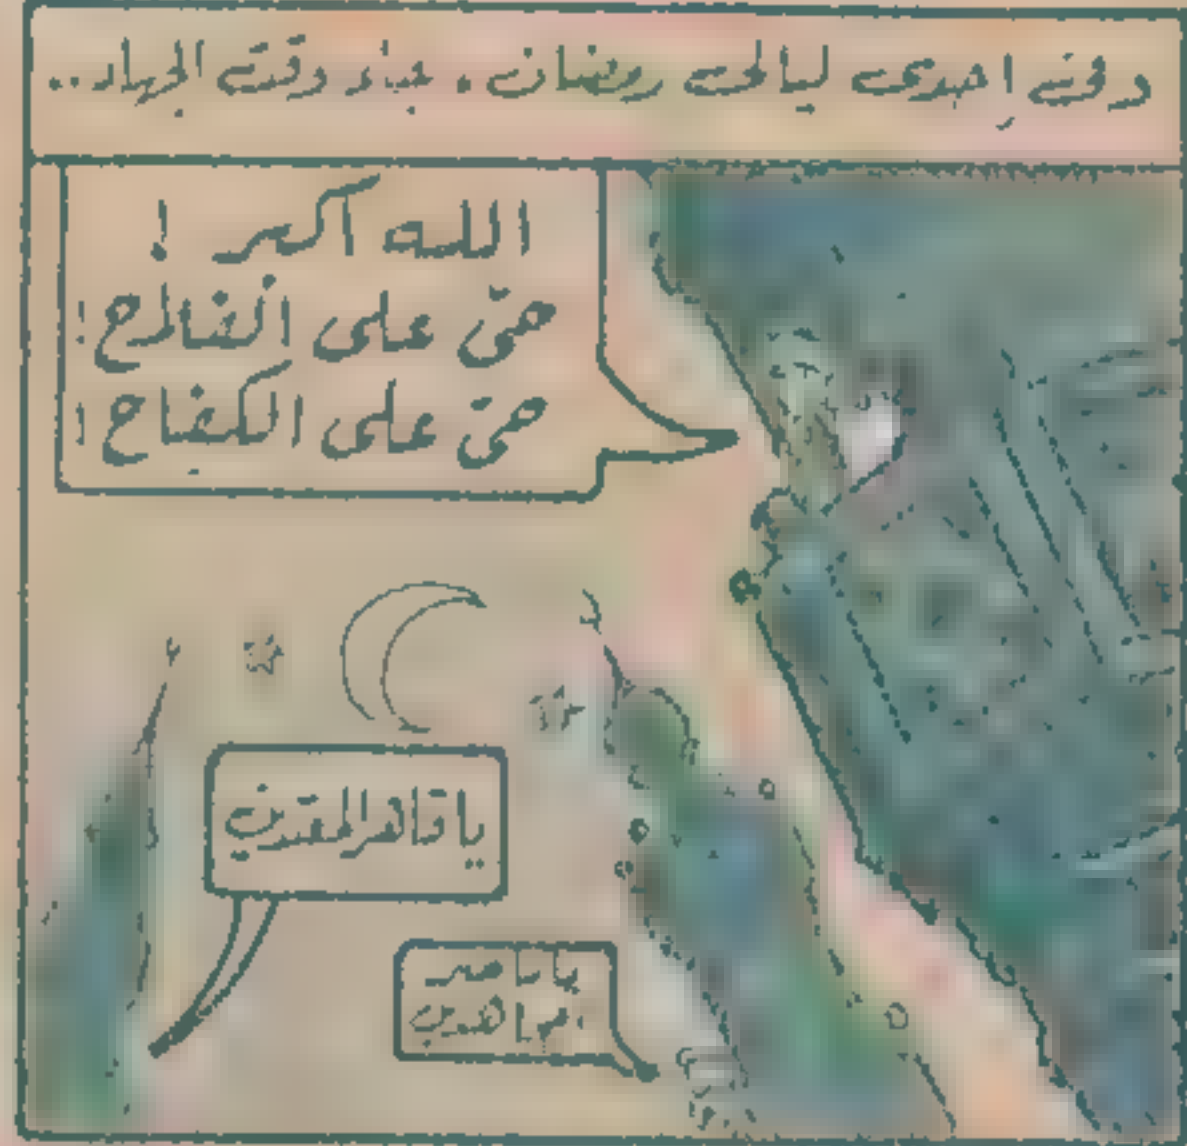 وفى إحدى ليالى رمضان، جاء وقت الجهاد..
الله أكبر !
حىّ على الفلاح !
حىّ على الكفاح !
يا قاهر المعتدين
يا ناصر
المجاهدين